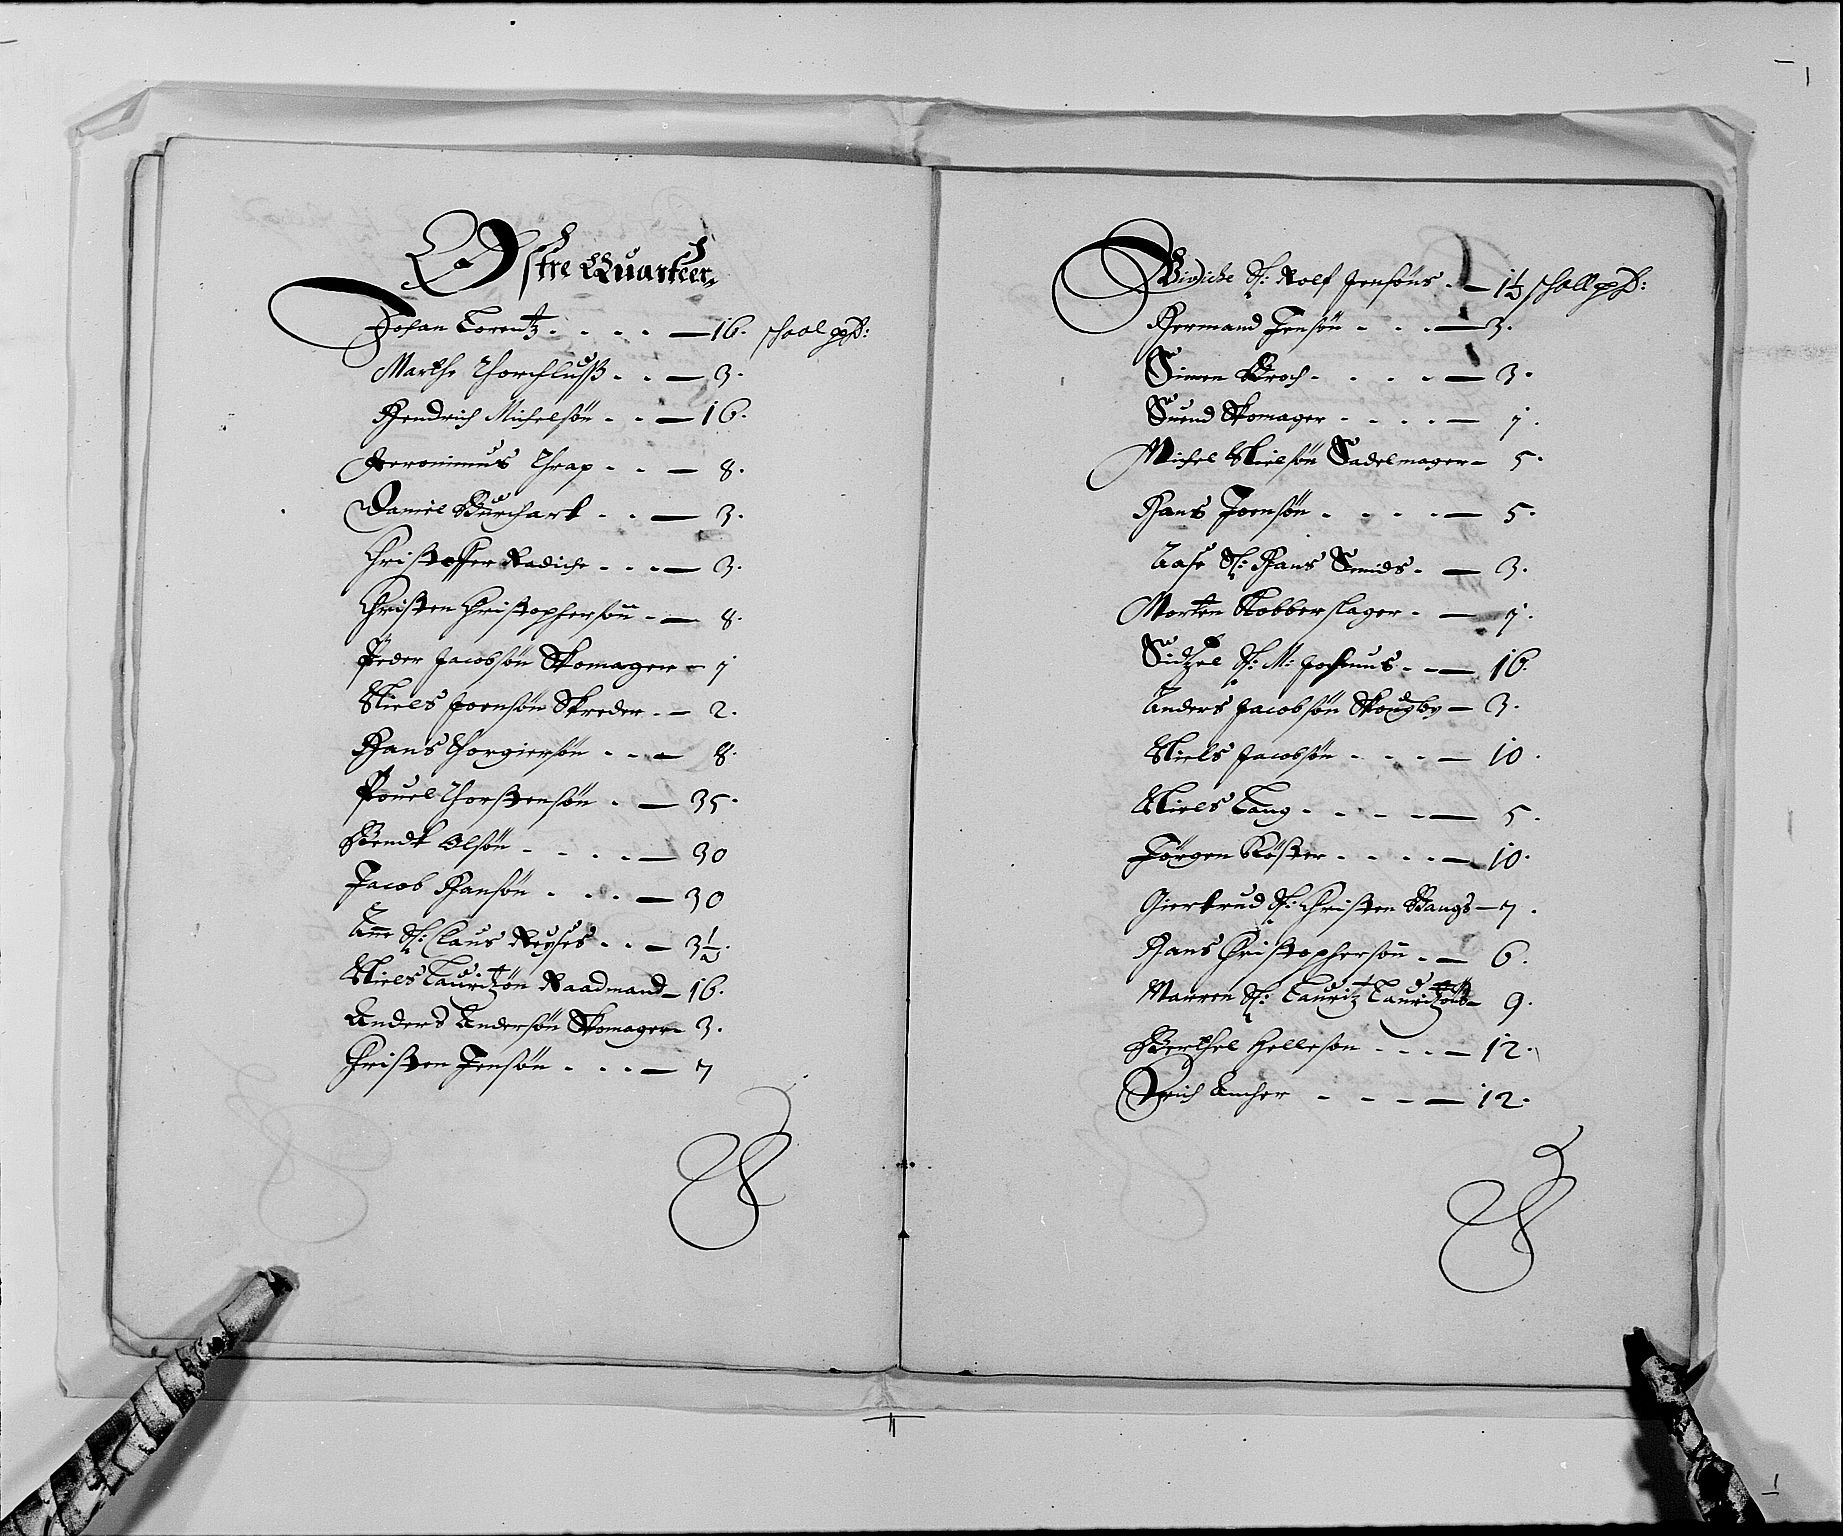 Østre Quarteer
Johan Lorentz . . . . — 16. schaal pp:
Marthe Thorchlusß . . — 3.
Hendrich Michelsøn . . — 16.
Jeronimus Thrap . . — 8.
Daniel Burchart . . — 3.
Christoffer Radiche . . . — 3.
Christen Christophersøn . — 8.
Peder Jacobsøn Skomager — 7
Niels Joensøn Skreder . — 2.
Hans Thorgiersøn . . . — 8.
Pouel Thorstensøn . — 35.
Bendt Olsøn . . . . — 30
Jacob Hansøn . . . . — 30
Anne Sl: Claus Reyses . . — 3½.
Niels Lauritzøn Raadmand — 16.
Anders Andersøn Skomager — 3.
Christen Jensøn . . . — 7
Sl: Rolf Jensøns . — 1½ schall pp:
Hermand Jensøn . . . — 3.
Simen Kroch . . . . — 3.
Suend Skomager . . . . — 7.
Michel Nielsøn Sadelmager — 5.
Hans Joensøn . . . . — 5.
Aase Sl: Hans Smids . — 3.
Morten Kobberslager . — 7.
Sidzel Sl: M: Jochums . . — 16.
Anders Jacobsøn Skougby — 3.
Niels Jacobsøn . . . — 10.
Niels Lang . . . . — 5.
Jørgen Køster . . . . — 10.
Giertrud Sl: Christen Bangs — 7.
Hans Christophersøn . — 6.
Maren Sl: Lauritz Lauritzøns — 9.
Berthel Hellesøn . . . — 12.
Erich Ancher . . . — 12.